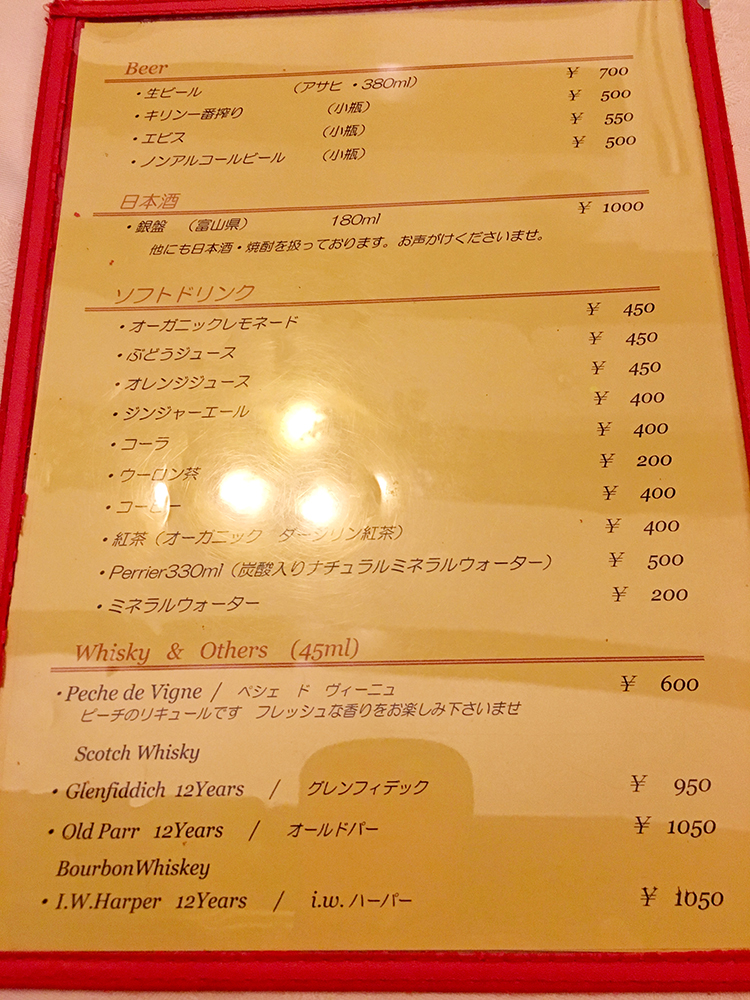 Beer
・生ビール （アサヒ ・380ml） ¥ 700
・キリン一番搾り （小瓶） ¥ 500
・エビス （小瓶） ¥ 550
・ノンアルコールビール （小瓶） ¥ 500
日本酒
・銀盤 （富山県） 180ml ¥ 1000
他にも日本酒・焼酎を扱っております。お声がけくださいませ。
ソフトドリンク
・オーガニックレモネード ¥ 450
・ぶどうジュース ¥ 450
・オレンジジュース ¥ 450
・ジンジャーエール ¥ 400
・コーラ ¥ 400
・ウーロン茶 ¥ 200
・コーヒー ¥ 400
・紅茶（オーガニック ダージリン紅茶） ¥ 400
・Perrier330ml（炭酸入りナチュラルミネラルウォーター） ¥ 500
・ミネラルウォーター ¥ 200
Whisky & Others (45ml)
・Peche de Vigne / ペシェ ド ヴィーニュ ¥ 600
ピーチのリキュールです フレッシュな香りをお楽しみ下さいませ
Scotch Whisky
・Glenfiddich 12Years / グレンフィデック ¥ 950
・Old Parr 12Years / オールドパー ¥ 1050
BourbonWhiskey
・I.W.Harper 12Years / i.w. ハーパー ¥ 1050